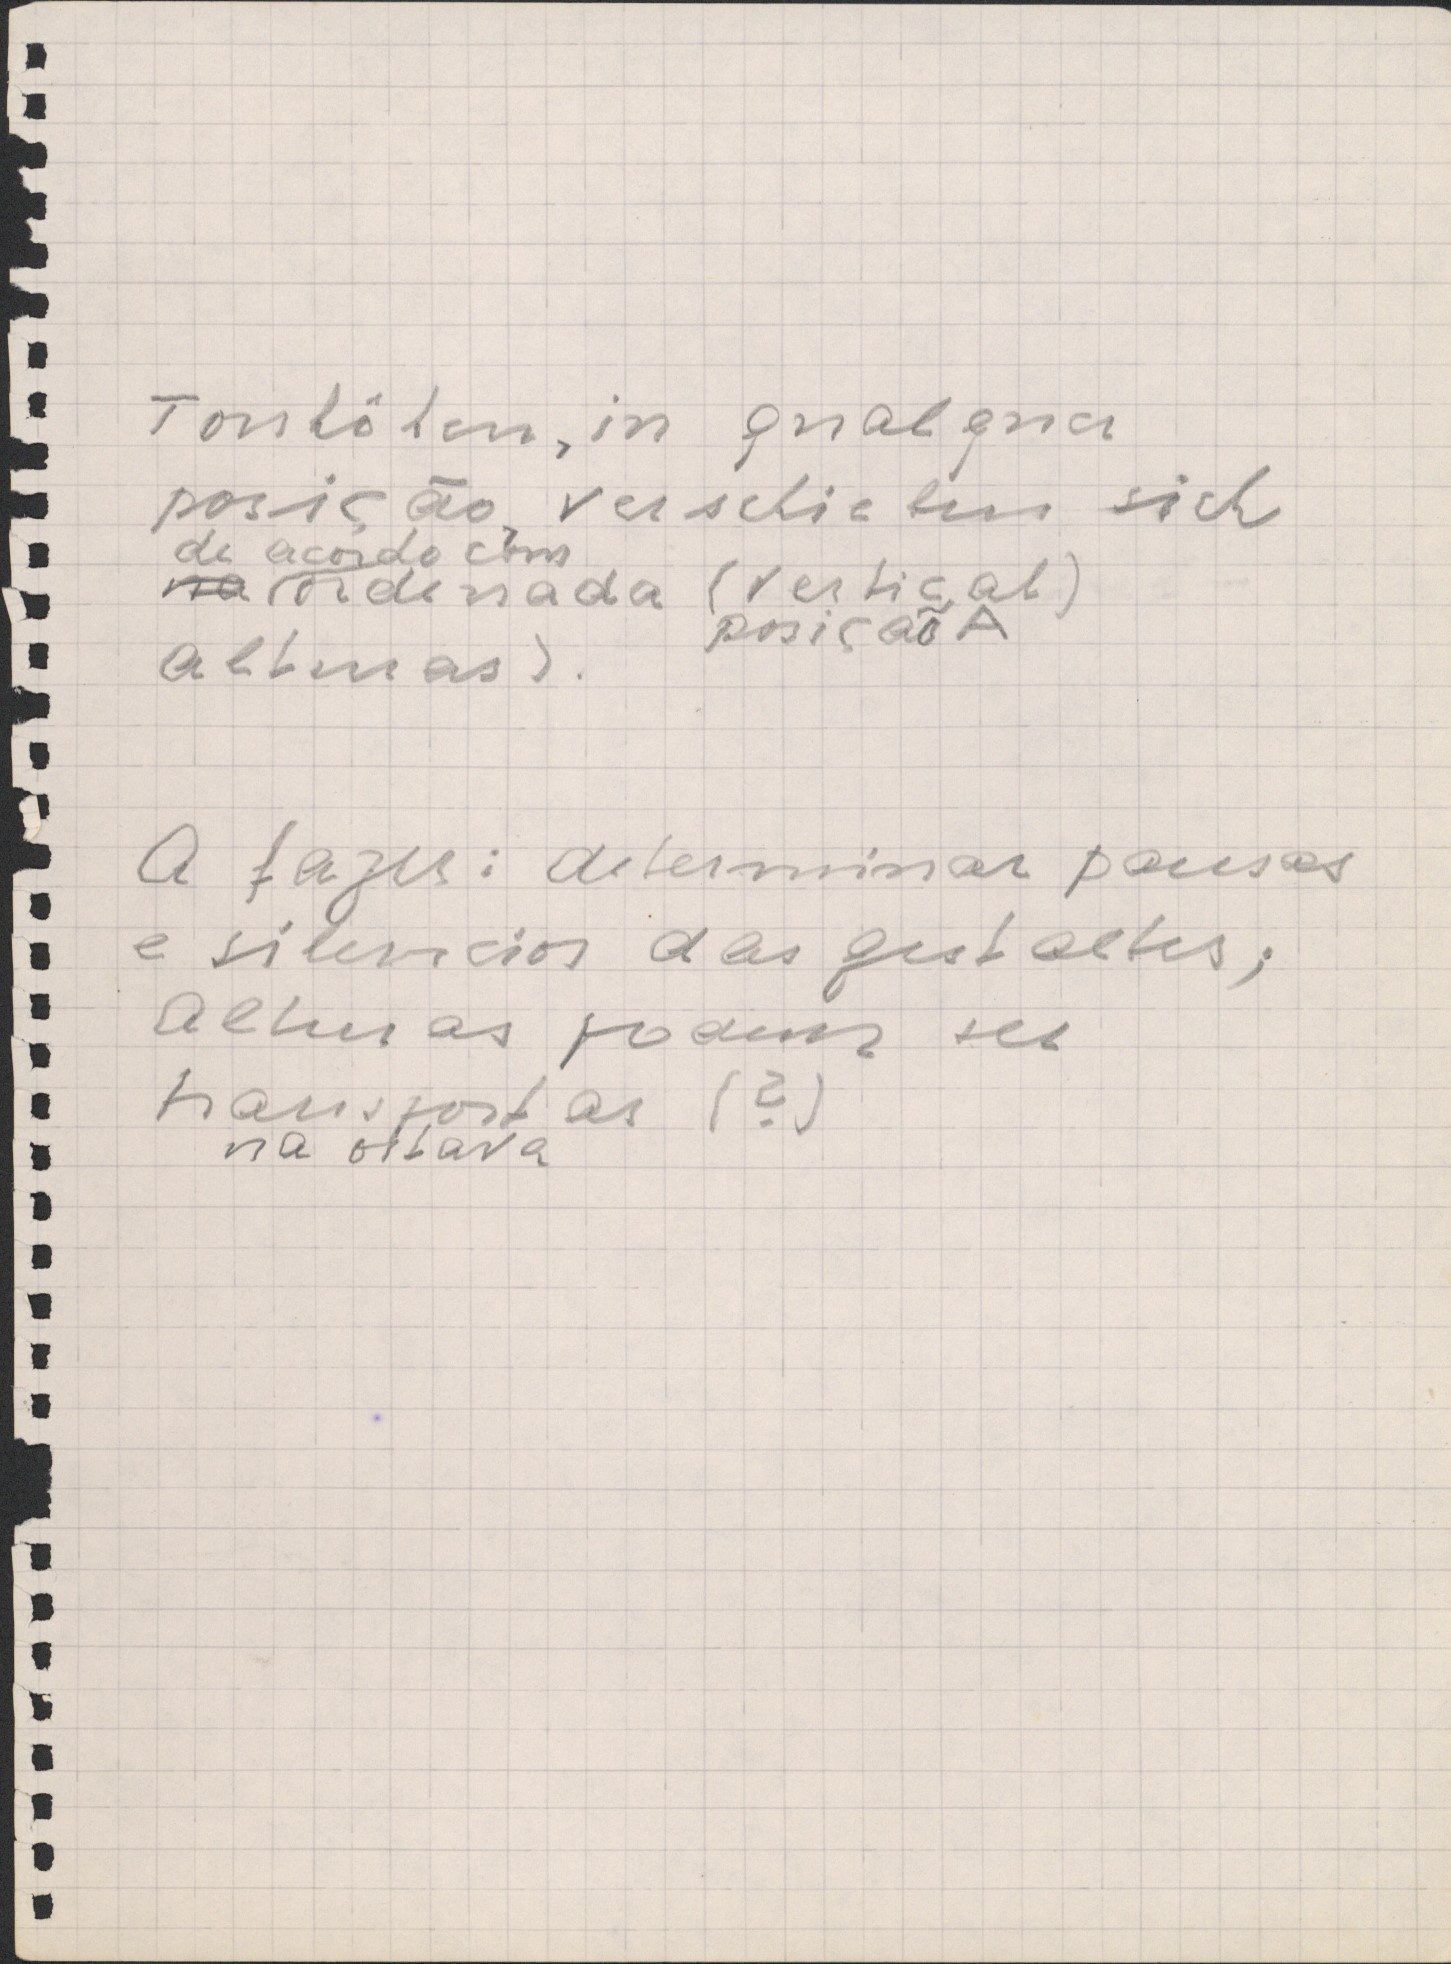 Tonhöhen, in qualquer
posição, verschieben sich
de acôrdo com
na ordenada (vertical)
posição A
alturas).
A fazer: determinar pausas
e silencios das gestaltes;
Alturas podem ser
transpostas (?)
na oitava